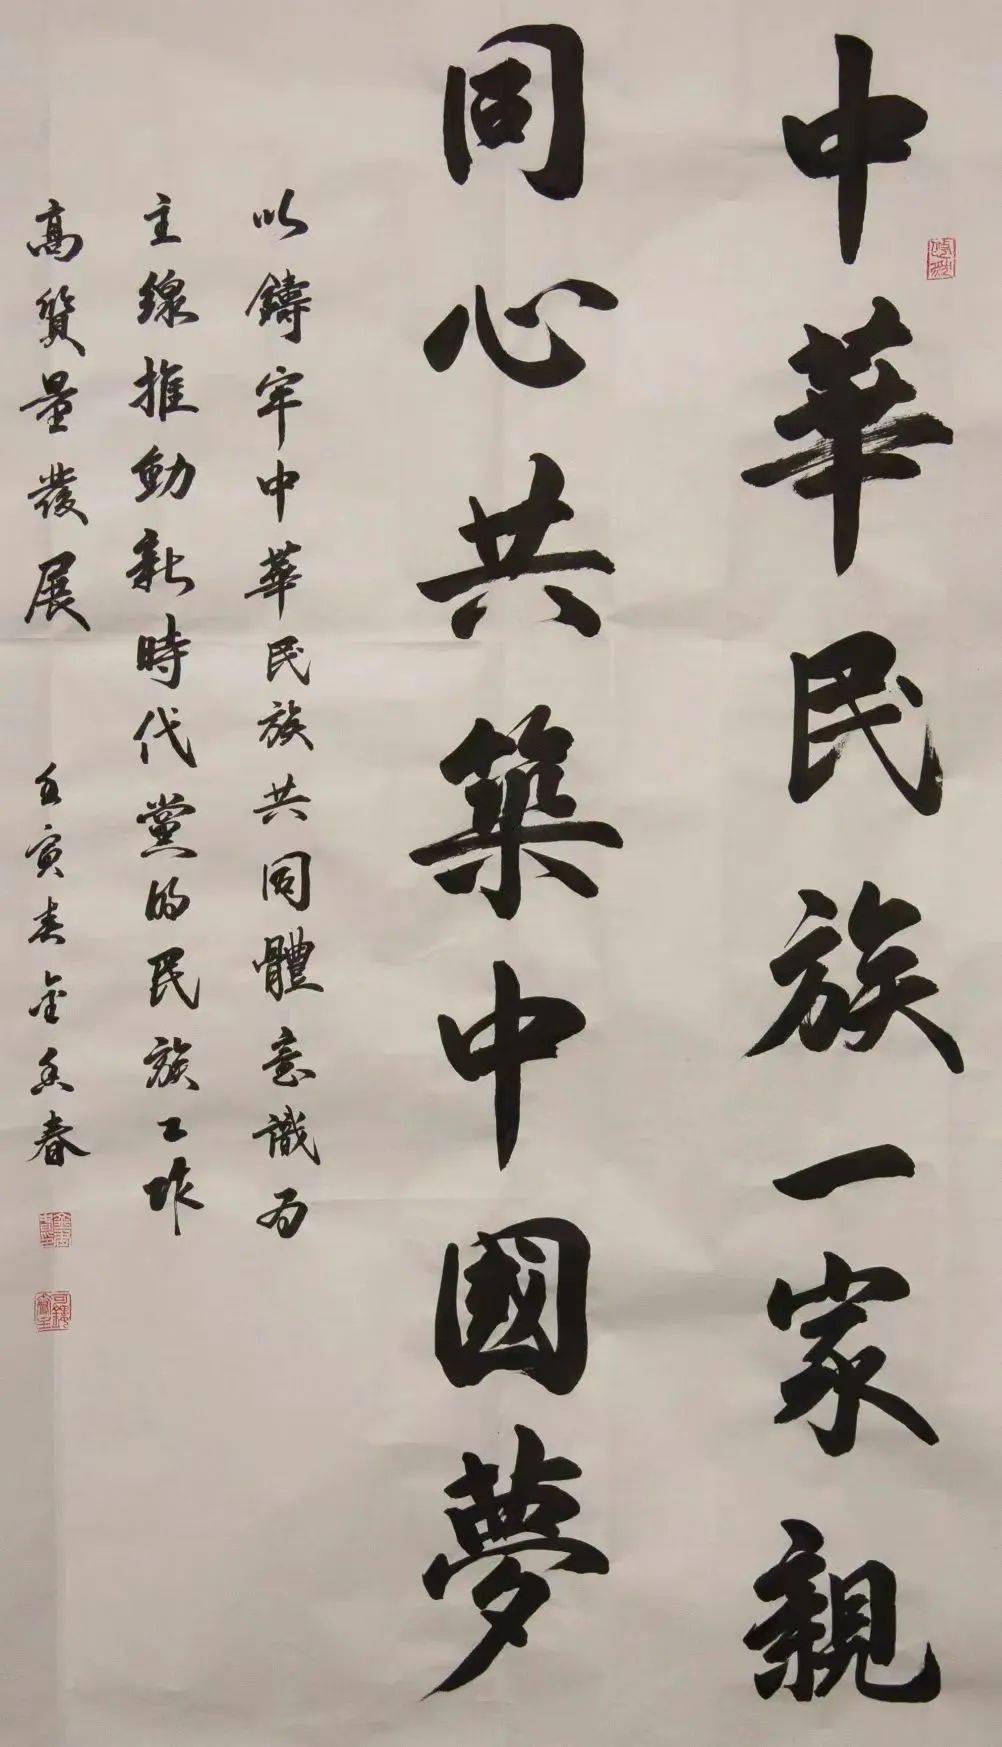 中華民族一家親
同心共築中國夢
以鑄牢中華民族共同體意識為
主線推動新時代黨的民族工作
高質量發展
壬寅春金香春